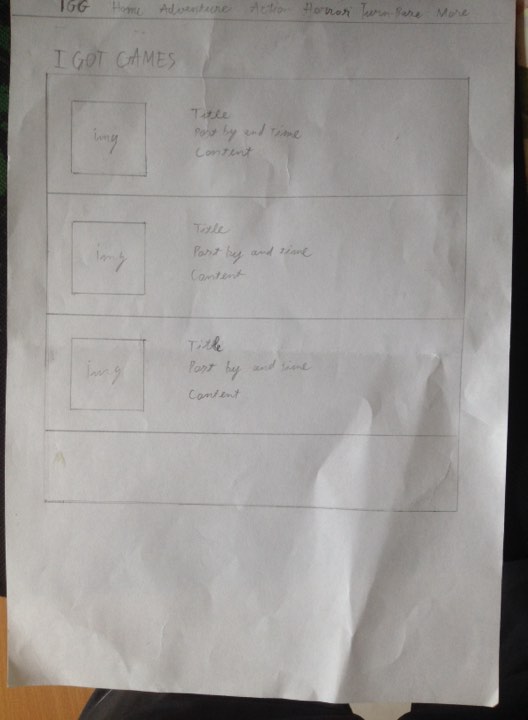 IGG Home Adventure Action Horror Turn-Base More
I GOT GAMES
img
Title
Post by and Time
Content
img
Title
Post by and time
Content
img
Title
Post by and time
Content